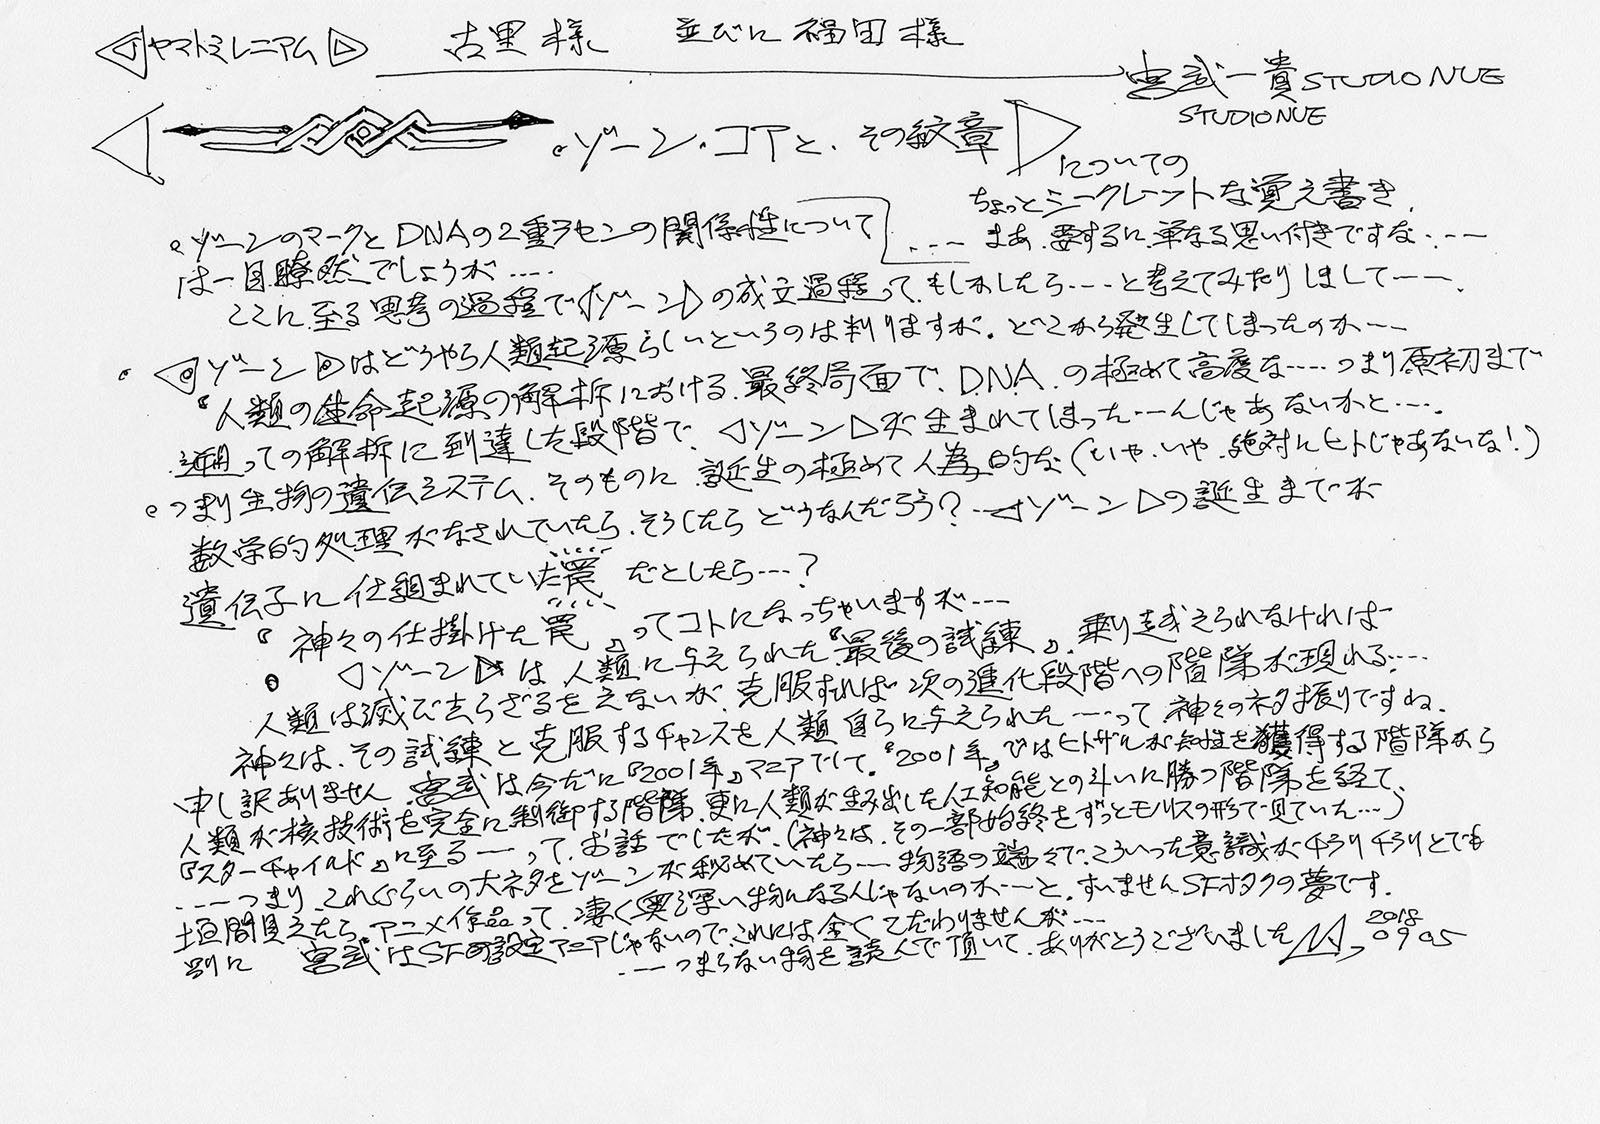 ヤマトミレニアム 古里様 並びに 福田様
宮武一貴 STUDIO NUE
STUDIO NUE
・ゾーン・コアと、その紋章
についての
ちょっとシークレットな覚え書き、
・・・・まあ、要するに、単なる思い付きですな・・・・
・ゾーンのマークとDNAの2重ラセンの関係性について
は一目瞭然でしょうが・・・・
ここに至る思考の過程で◁ゾーン▷の成立過程って、もしかしたら・・・・と考えてみたりしまして――、
・◁ゾーン▷はどうやら人類起源らしいというのは判りますが。どこから発生してしまったのか――
『人類の生命起源の解析における、最終局面で、DNA、の極めて高度な・・・・つまり原初まで
遡っての解析に到達した段階で、◁ゾーン▷が生まれてしまった・・・んじゃあないかと・・・・。
・つまり生物の遺伝システム、そのものに、誕生の極めて人為的な(いや、いや、絶対にヒトじゃあないな!)
数学的処理がなされていたら、そうしたらどうなんだろう?・・・◁ゾーン▷の誕生までが
遺伝子に仕組まれていた罠 だとしたら・・・?
『神々の仕掛けた罠』ってコトになっちゃいますが・・・
・ ◁ゾーン▷は人類に与えられた『最後の試練』、乗り越えられなければ
人類は滅び去らざるをえないが、克服すれば次の進化段階への階隊が現れる・・・・
神々は、その試練と克服するチャンスを人類自らに与えられた――って神々のネタ振りですね。
申し訳ありません、宮武は今だに『2001年』マニアでして。『2001年』ではヒトザルが知性を獲得する階隊から
人類が核技術を完全に制御する階隊、更に人類が生み出した人工知能との斗いに勝つ階隊を経て、
『スターチャイルド』に至る――って、お話でしたが、(神々は、その一部始終をずっとモノリスの形で見ていた・・・)
・・・・つまり、これぐらいの大ネタをゾーンが秘めていたら――物語の端々で、こういった意識がチラリチラリとでも
垣間見えたら、アニメ作品って、凄く奥深い物になるんじゃないのか――と。すいませんSFオタクの夢です。
別に 宮武はSF的設定マニアじゃないので、これには全くこだわりませんが・・・
・――つまらない物を読んで頂いて、ありがとうございました 2018
09 05